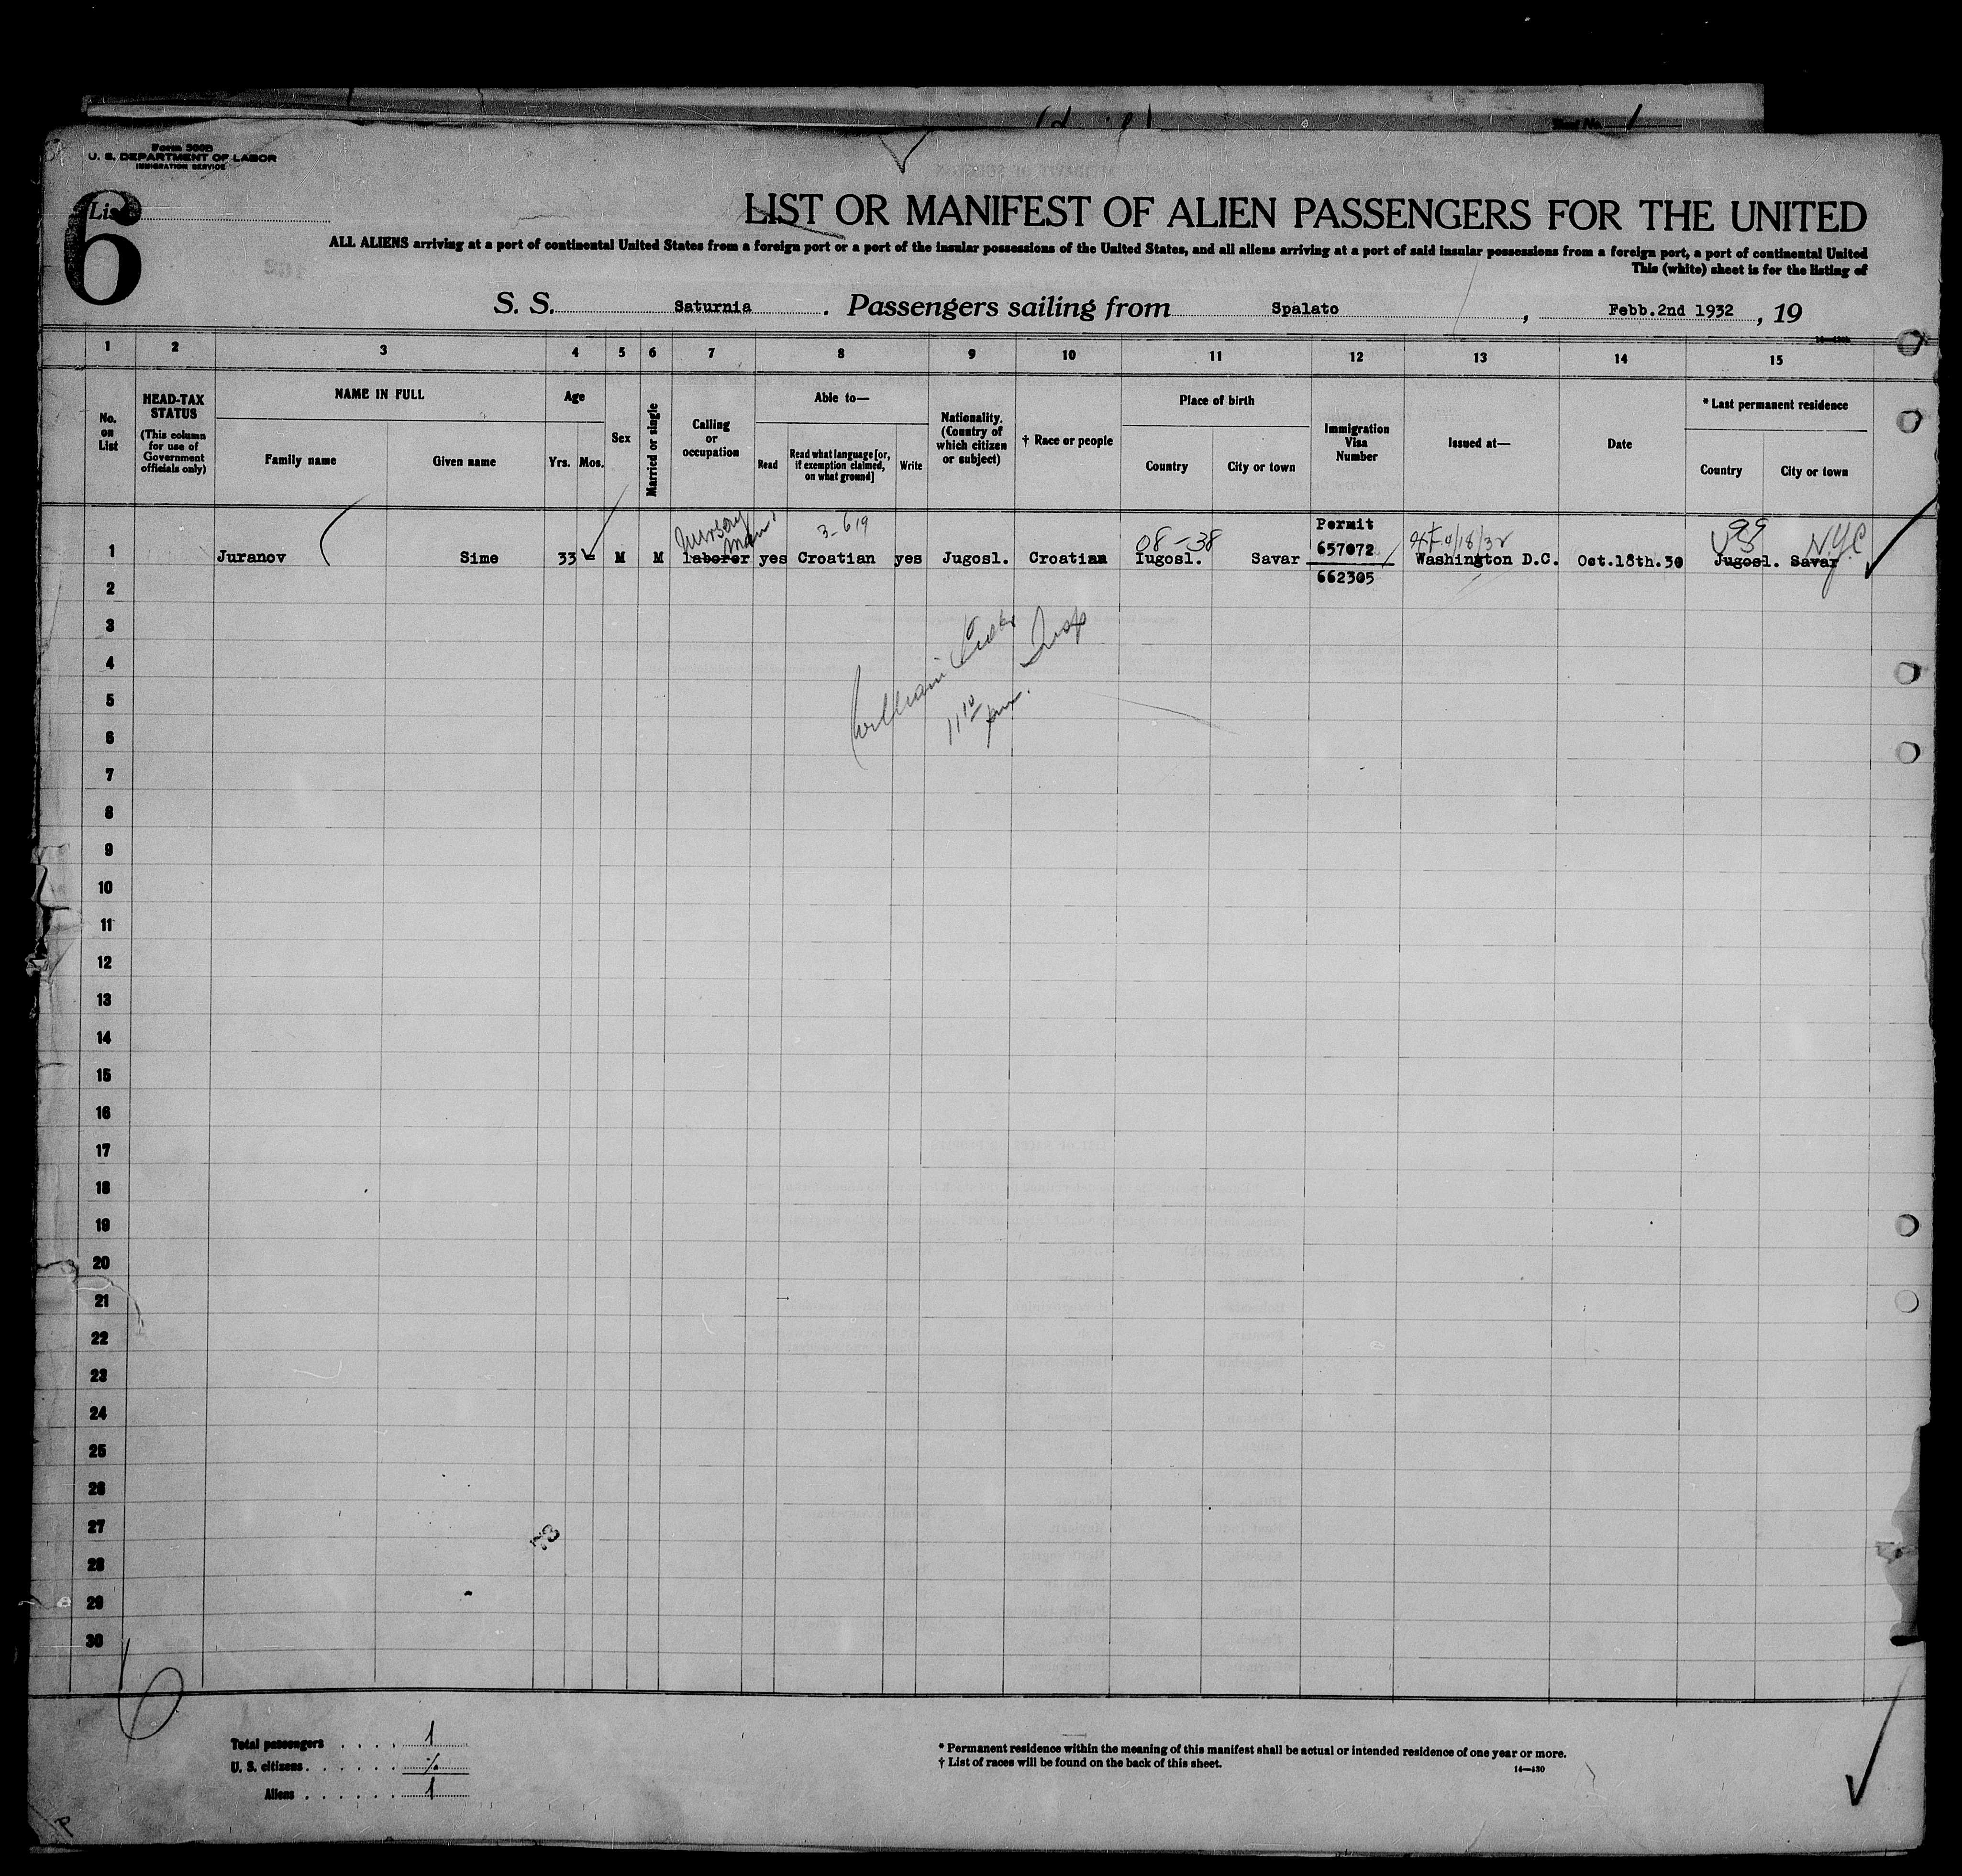 List No. 1
Form 500B
U. S. DEPARTMENT OF LABOR
IMMIGRATION SERVICE
List
6
LIST OR MANIFEST OF ALIEN PASSENGERS FOR THE UNITED
ALL ALIENS arriving at a port of continental United States from a foreign port or a port of the insular possessions of the United States, and all aliens arriving at a port of said insular possessions from a foreign port, a port of continental United
This (white) sheet is for the listing of
S. S. Saturnia. Passengers sailing from Spalato, Febb.2nd 1932, 19
1 2 3 4 5 6 7 8 9 10 11 12 13 14 15
No. on List
HEAD-TAX STATUS
(This column for use of Government officials only)
NAME IN FULL
Family name
Given name
Age
Yrs. Mos.
Sex
Married or single
Calling or occupation
Able to—
Read
Read what language [or, if exemption claimed, on what ground]
Write
Nationality. (Country of which citizen or subject)
† Race or people
Place of birth
Country
City or town
Immigration Visa Number
Issued at—
Date
* Last permanent residence
Country
City or town
Nursery man 3-619 08-38 Permit 4/18/32 99
657072 US N.Y.C
1 Juranov Sime 33 - M M laborer yes Croatian yes Jugosl. Croatian Iugosl. Savar Washington D.C. Oct.18th.30 Jugosl. Savar
662305
2
3
4
5
6
7
8
9
10
11
12
13
14
15
16
17
18
19
20
21
22
23
24
25
26
27
28
29
30
William Insp
11 10 pm.
Total passengers . . . . 1
U. S. citizens . . . . . . %
Aliens . . . . . . 1
* Permanent residence within the meaning of this manifest shall be actual or intended residence of one year or more.
† List of races will be found on the back of this sheet.
14—430